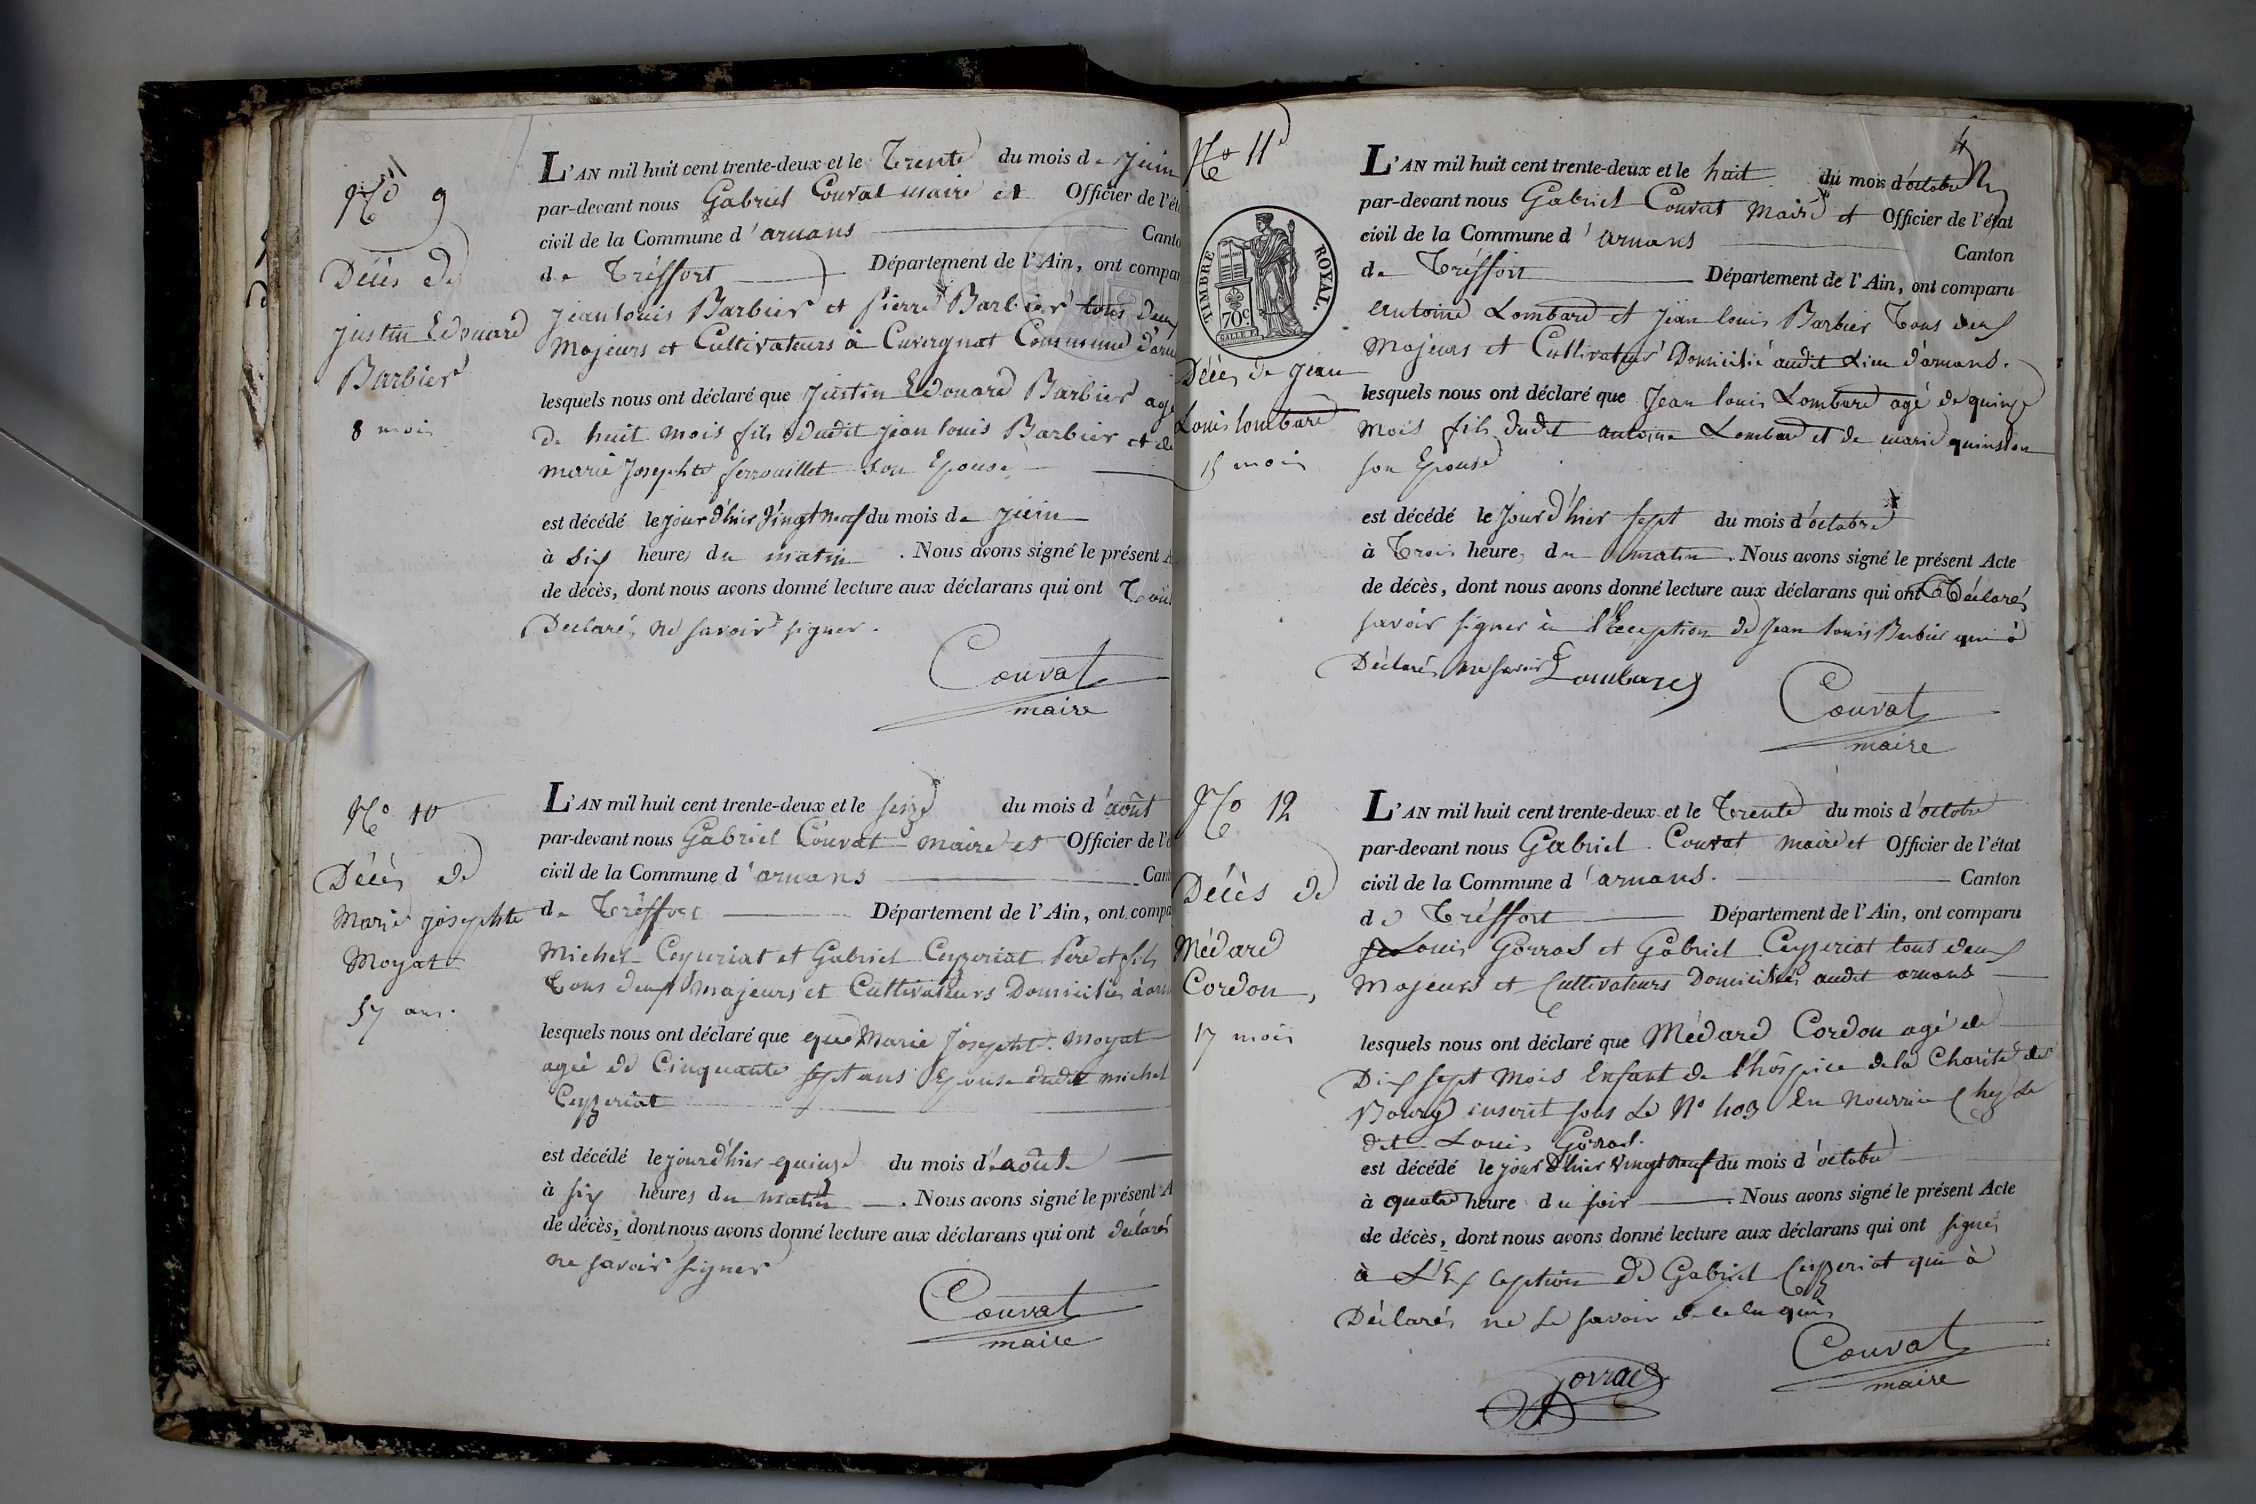 No 9
Décès de
justin Edouard
Barbier
8 mois
L'AN mil huit cent trente-deux et le Trente du mois de juin
par-devant nous Gabriel Couvat maire et Officier de l'ét
civil de la Commune d'arnans Canto
de Tréffort Département de l'Ain, ont compar
jean louis Barbier et pierre Barbier tous deux
Majeurs et Cultivateurs à Cuvergnat Commune d'arn
lesquels nous ont déclaré que justin Edouard Barbier agé
de huit mois fils dudit jean louis Barbier et de
marie Josephte ferrouillet son Epouse
est décédé le jour d'hier vingt neuf du mois de juin
à six heures du matin . Nous avons signé le présent A
de décès, dont nous avons donné lecture aux déclarans qui ont Tous
Déclarés ne savoir signer.
Couvat
maire
No 10
Décès de
Marie josephte
Moyat
57 ans.
L'AN mil huit cent trente-deux et le seize du mois d'août
par-devant nous Gabriel Couvat maire et Officier de l'é
civil de la Commune d'arnans Cant
de Tréffort Département de l'Ain, ont compa
Michel Ceyzeriat et Gabriel Ceyzeriat Père et fils
Tous deux majeurs et Cultivateurs Domiciliés à arn
lesquels nous ont déclaré que que Marie Josephte Moyat
agée de Cinquante sept ans Epouse dudit michel
Ceyzeriat
est décédé le jour d'hier quinze du mois d'août
à six heures du matin . Nous avons signé le présent A
de décès, dont nous avons donné lecture aux déclarans qui ont déclarés
ne savoir signer
Couvat
maire
No 11
TIMBRE ROYAL.
70c
Décès de jean
Louis lombard
15 mois
L'AN mil huit cent trente-deux et le huit du mois d'octobre
par-devant nous Gabriel Couvat maire et Officier de l'état
civil de la Commune d'arnans Canton
de Tréffort Département de l'Ain, ont comparu
antoine Lombard et jean louis Barbier Tous deux
Majeurs et Cultivateurs Domicilié audit Lieu d'arnans.
lesquels nous ont déclaré que Jean louis Lombard agé de quinze
mois fils dudit antoine Lombard et de marie quinsion
son Epouse
est décédé le jour d'hier sept du mois d'octobre
à Trois heures du matin . Nous avons signé le présent Acte
de décès, dont nous avons donné lecture aux déclarans qui ont Déclarés
savoir signer à l'Éxception de Jean louis Barbier qui à
Déclarés ne savoir
Lombard
Couvat
maire
No 12
Décès de
Médard
Cordon,
17 mois
L'AN mil huit cent trente-deux et le Trente du mois d'octobre
par-devant nous Gabriel Couvat maire et Officier de l'état
civil de la Commune d'arnans. Canton
de Tréffort Département de l'Ain, ont comparu
Louis Gorras et Gabriel Ceyzeriat tous deux
Majeurs et Cultivateurs Domiciliés audit arnans
lesquels nous ont déclaré que Médard Cordon agé de
Dix sept mois Enfant de l'hôspice de la Charité de
Bourg inscrit sous Le No 403 En Nourrice Chez Le
dit Louis Gorras.
est décédé le jour d'hier vingt neuf du mois d'octobre
à quatre heure du soir . Nous avons signé le présent Acte
de décès, dont nous avons donné lecture aux déclarans qui ont signés
à L'Exception de Gabriel Ceyzeriat qui à
Déclarés ne Le savoir de ce
Gorras
Couvat
maire